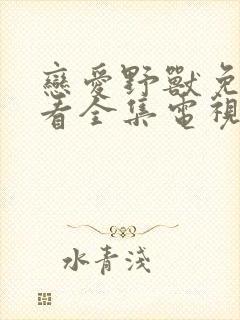 戀愛野獸免
看全集電視
水青淺